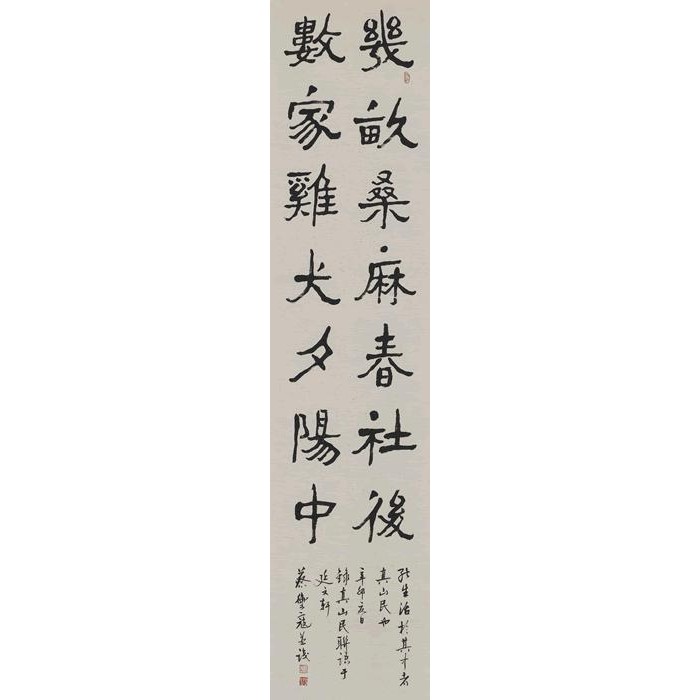 幾畝桑麻春社後
數家雞犬夕陽中
能生活於其中者
真山民也
辛卯夏日
錄真山民聯語于
延文軒
蔡樂寇並識